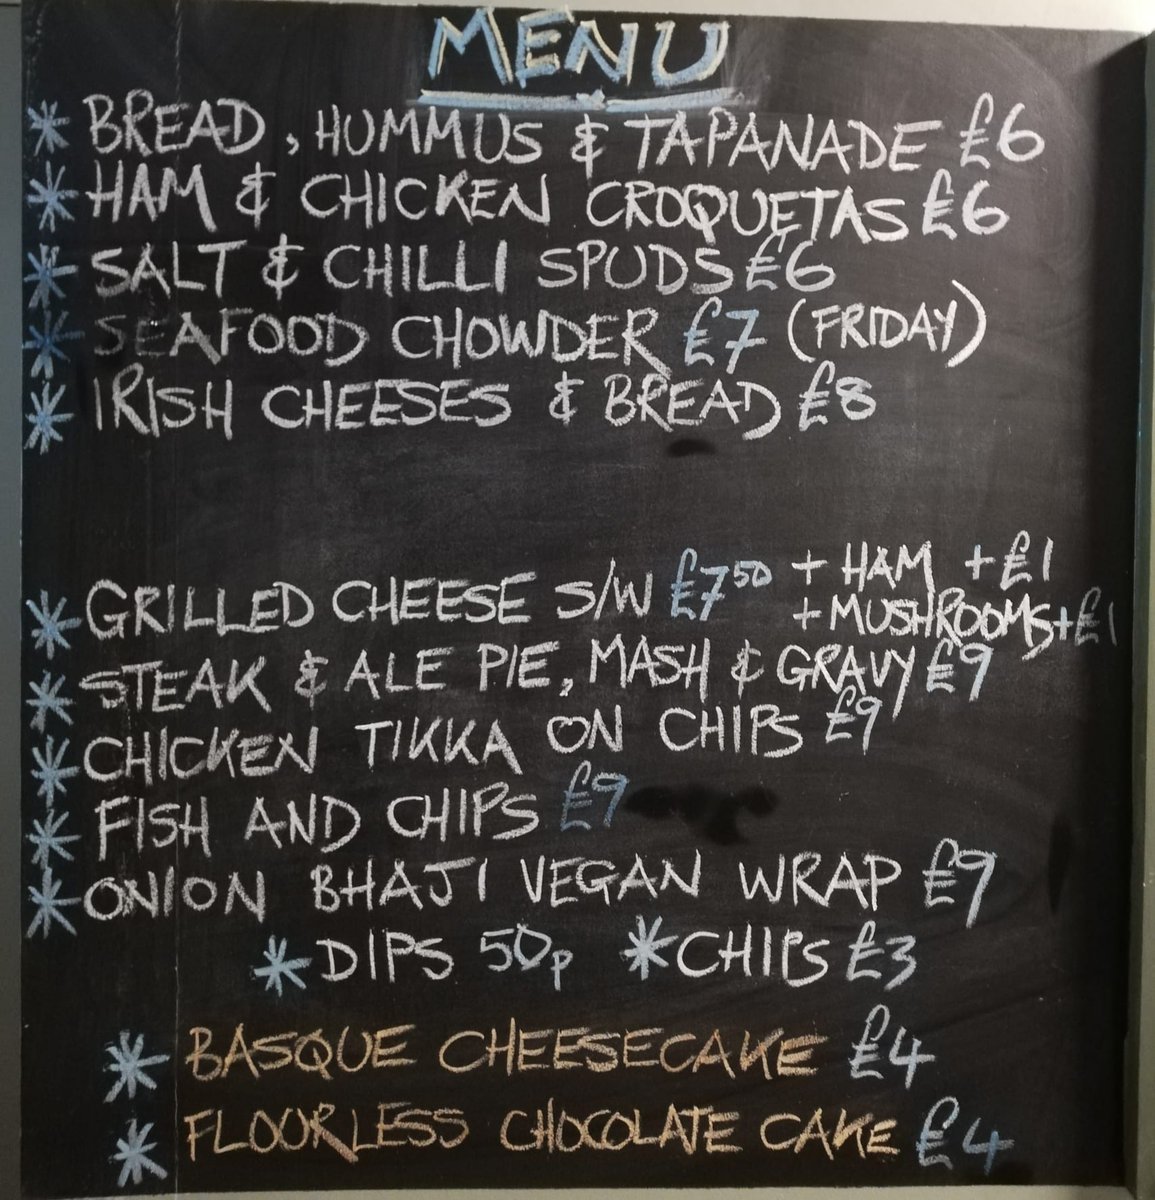 MENU
* BREAD, HUMMUS & TAPANADE £6
* HAM & CHICKEN CROQUETAS £6
* SALT & CHILLI SPUDS £6
* SEAFOOD CHOWDER £7 (FRIDAY)
* IRISH CHEESES & BREAD £8
* GRILLED CHEESE S/W £7 50 + HAM + £1
+ MUSHROOMS + £1
* STEAK & ALE PIE, MASH & GRAVY £9
* CHICKEN TIKKA ON CHIPS £9
* FISH AND CHIPS £9
* ONION BHAJI VEGAN WRAP £9
* DIPS 50p * CHIPS £3
* BASQUE CHEESECAKE £4
* FLOURLESS CHOCOLATE CAKE £4